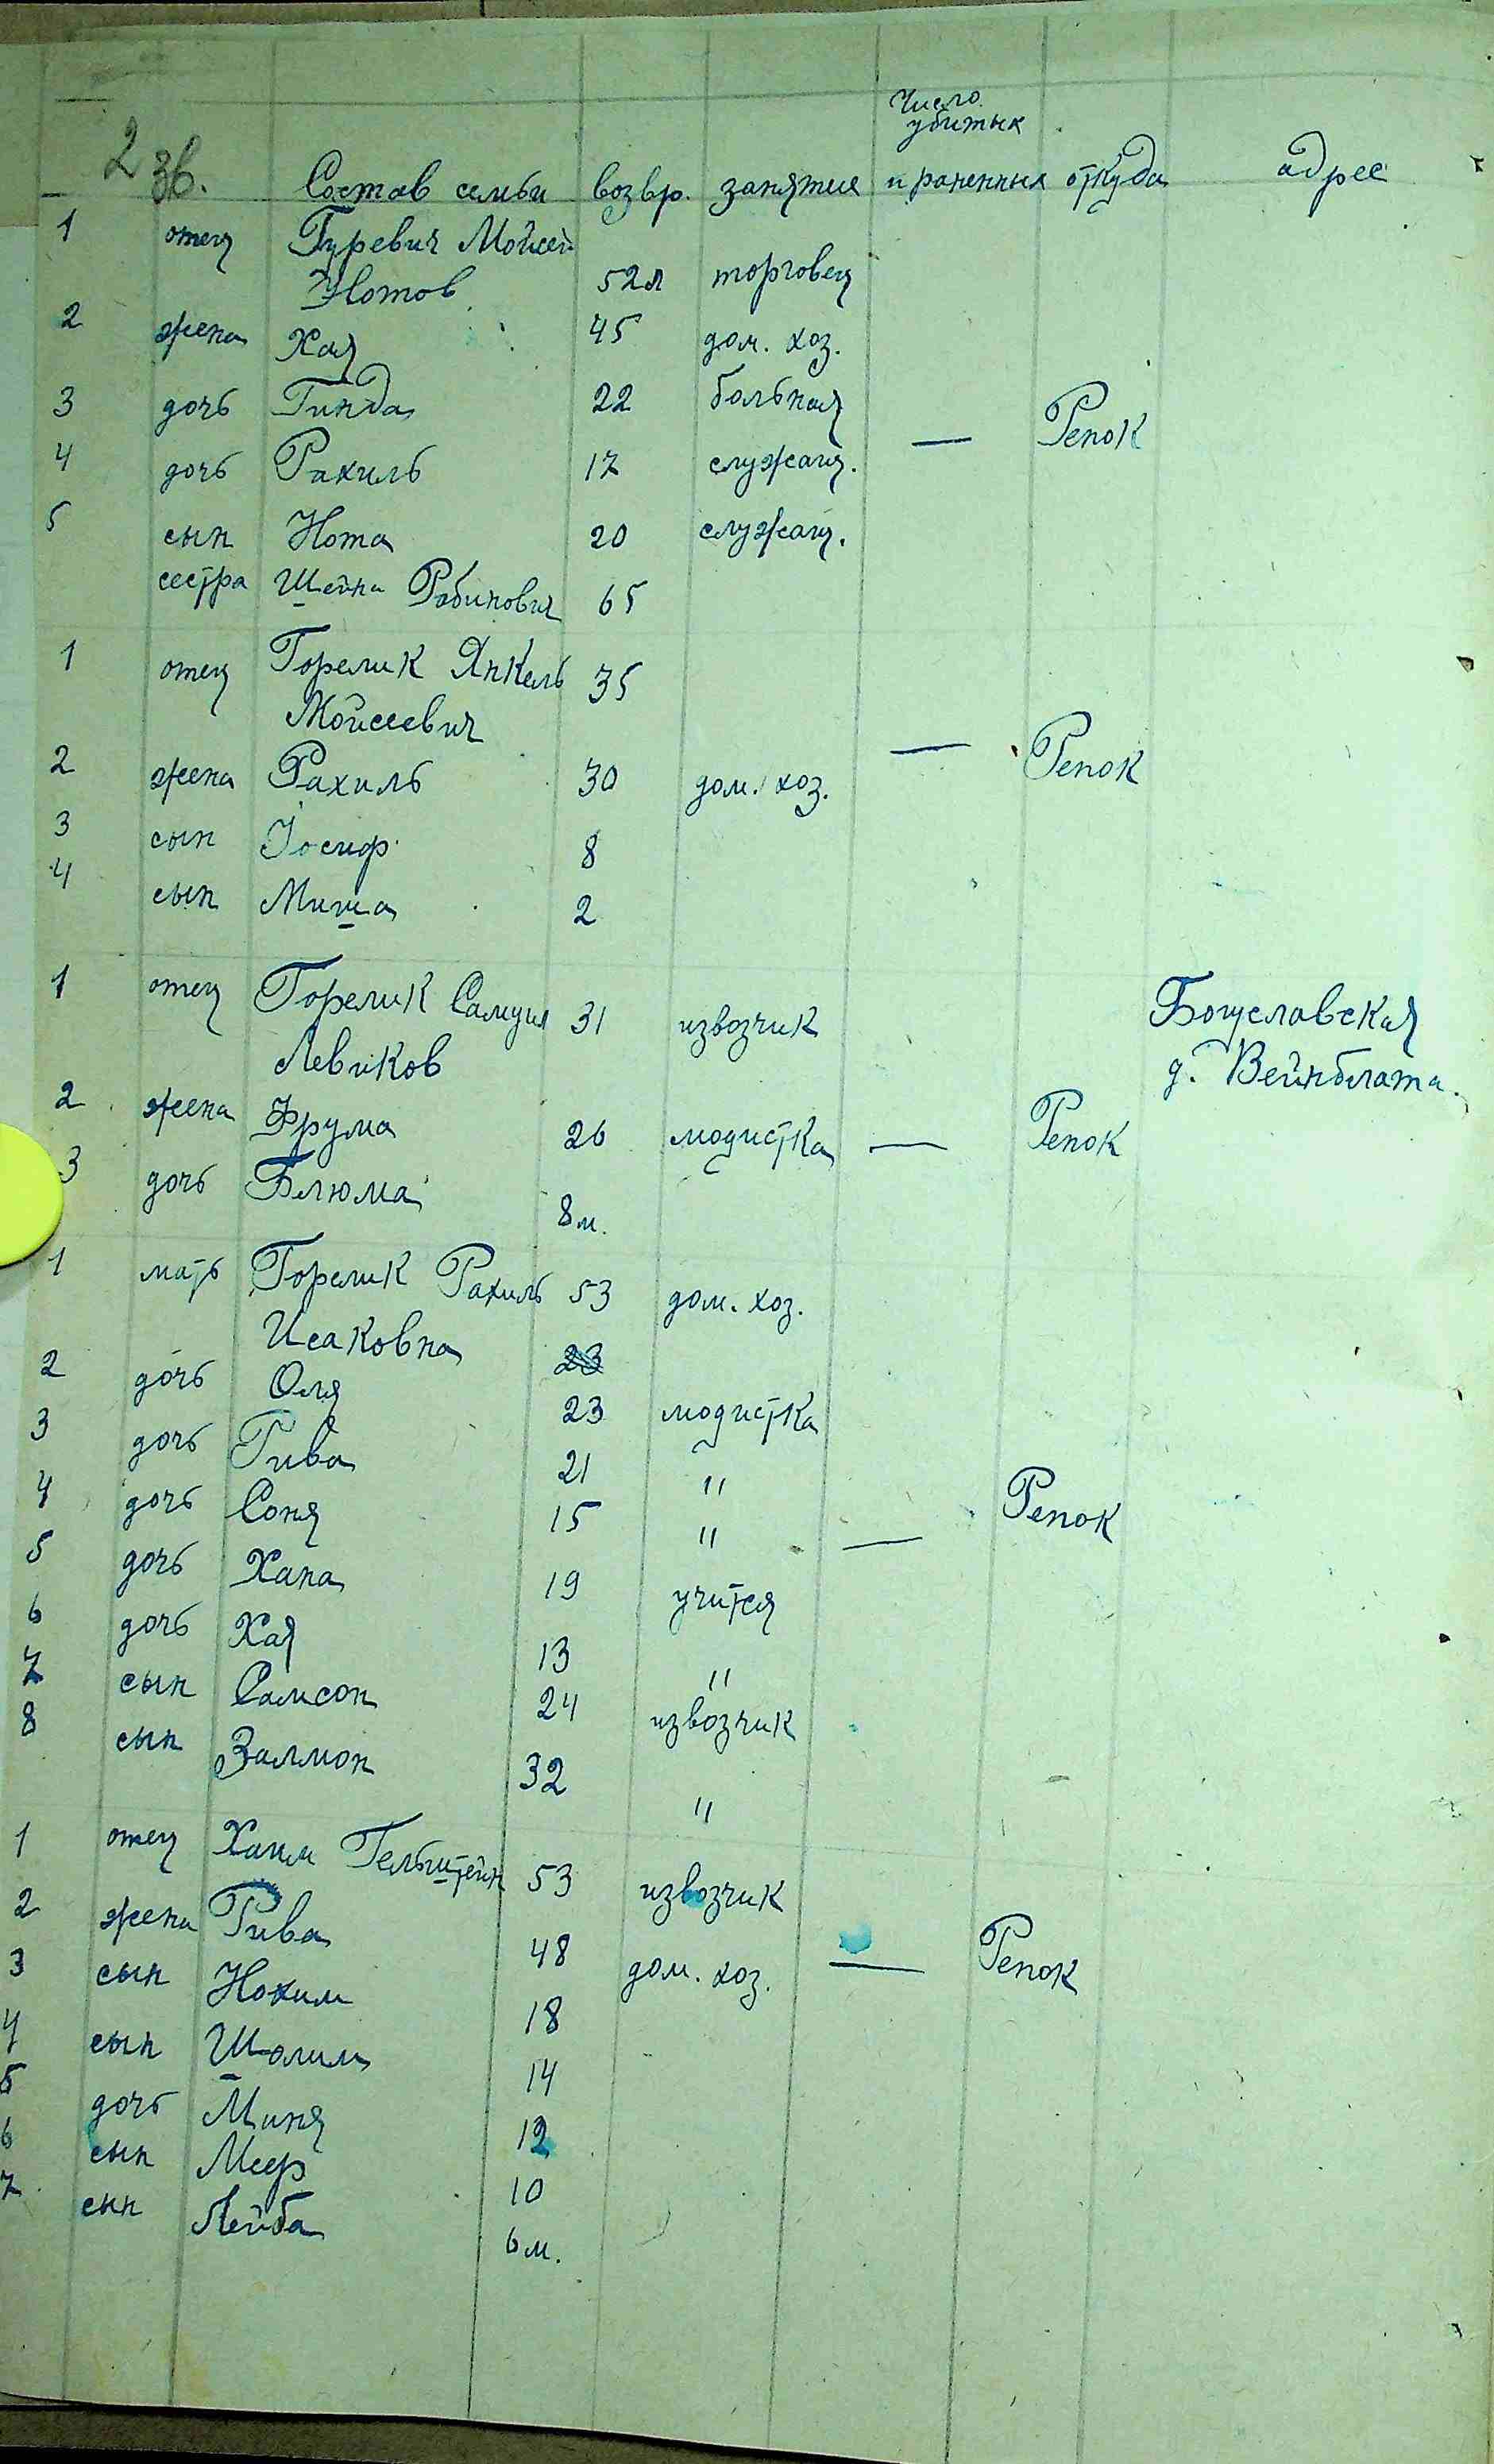 Число
убитых
2 зв. Состав семьи возвр. занятие и раненных откуда адрес
1 отец Гуревич Мойсей
Нотов 52л торговец
2 жена Хая 45 дом. хоз.
3 дочь Гинда 22 больная
4 дочь Рахиль 17 служащ. — Репок
5 сын Нота 20 служащ.
сестра Шейна Рабинович 65
1 отец Горелик Янкель 35
Мойсеевич — Репок
2 жена Рахиль 30 дом. хоз.
3 сын Иосиф 8
4 сын Миша 2
1 отец Горелик Самуил 31 извозчик Богуславская
Левиков д. Вейнблата
2 жена Фрума 26 модистка — Репок
3 дочь Блюма 8м.
1 мать Горелик Рахиль 53 дом. хоз.
Исаковна 23
2 дочь Оля 23 модистка
3 дочь Рива 21 "
4 дочь Соня 15 " — Репок
5 дочь Хана 19 учится
6 дочь Хая 13 "
7 сын Самсон 24 извозчик
8 сын Залмон 32 "
1 отец Хаим Гельштейн 53 извозчик
2 жена Рива 48 дом. хоз. — Репок
3 сын Нохим 18
4 сын Шолим 14
5 дочь Миня 12
6 сын Меер 10
7 сын Лейба 6м.